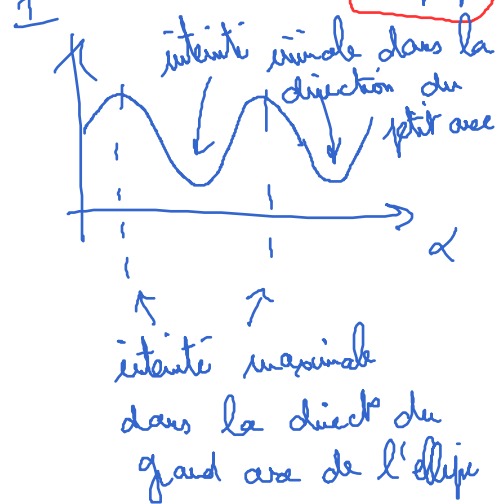 I
intenité minimale dans la
direction du
petit axe
α
intenité maximale
dans la direct° du
grand axe de l'ellipe